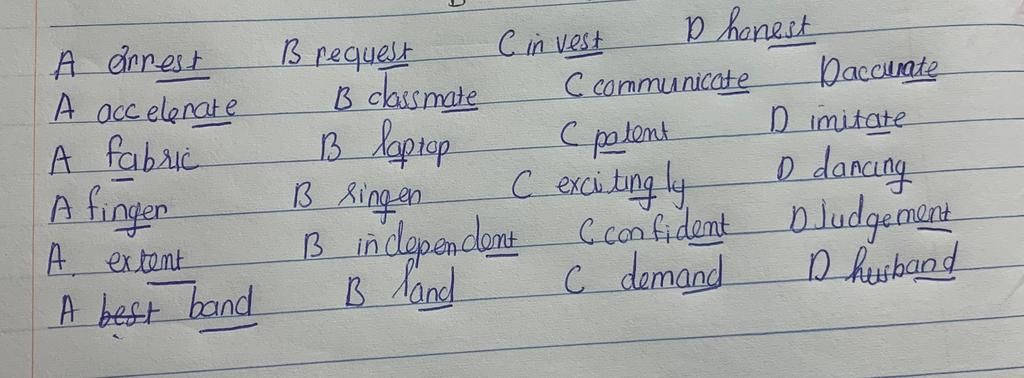 A arrest B request C invest D honest
A accelerate B classmate C communicate D accurate
A fabric B laptop C patent D imitate
A finger B singer C excitingly D dancing
A. extent B independent C confident D Judgement
A best band B land C demand D husband